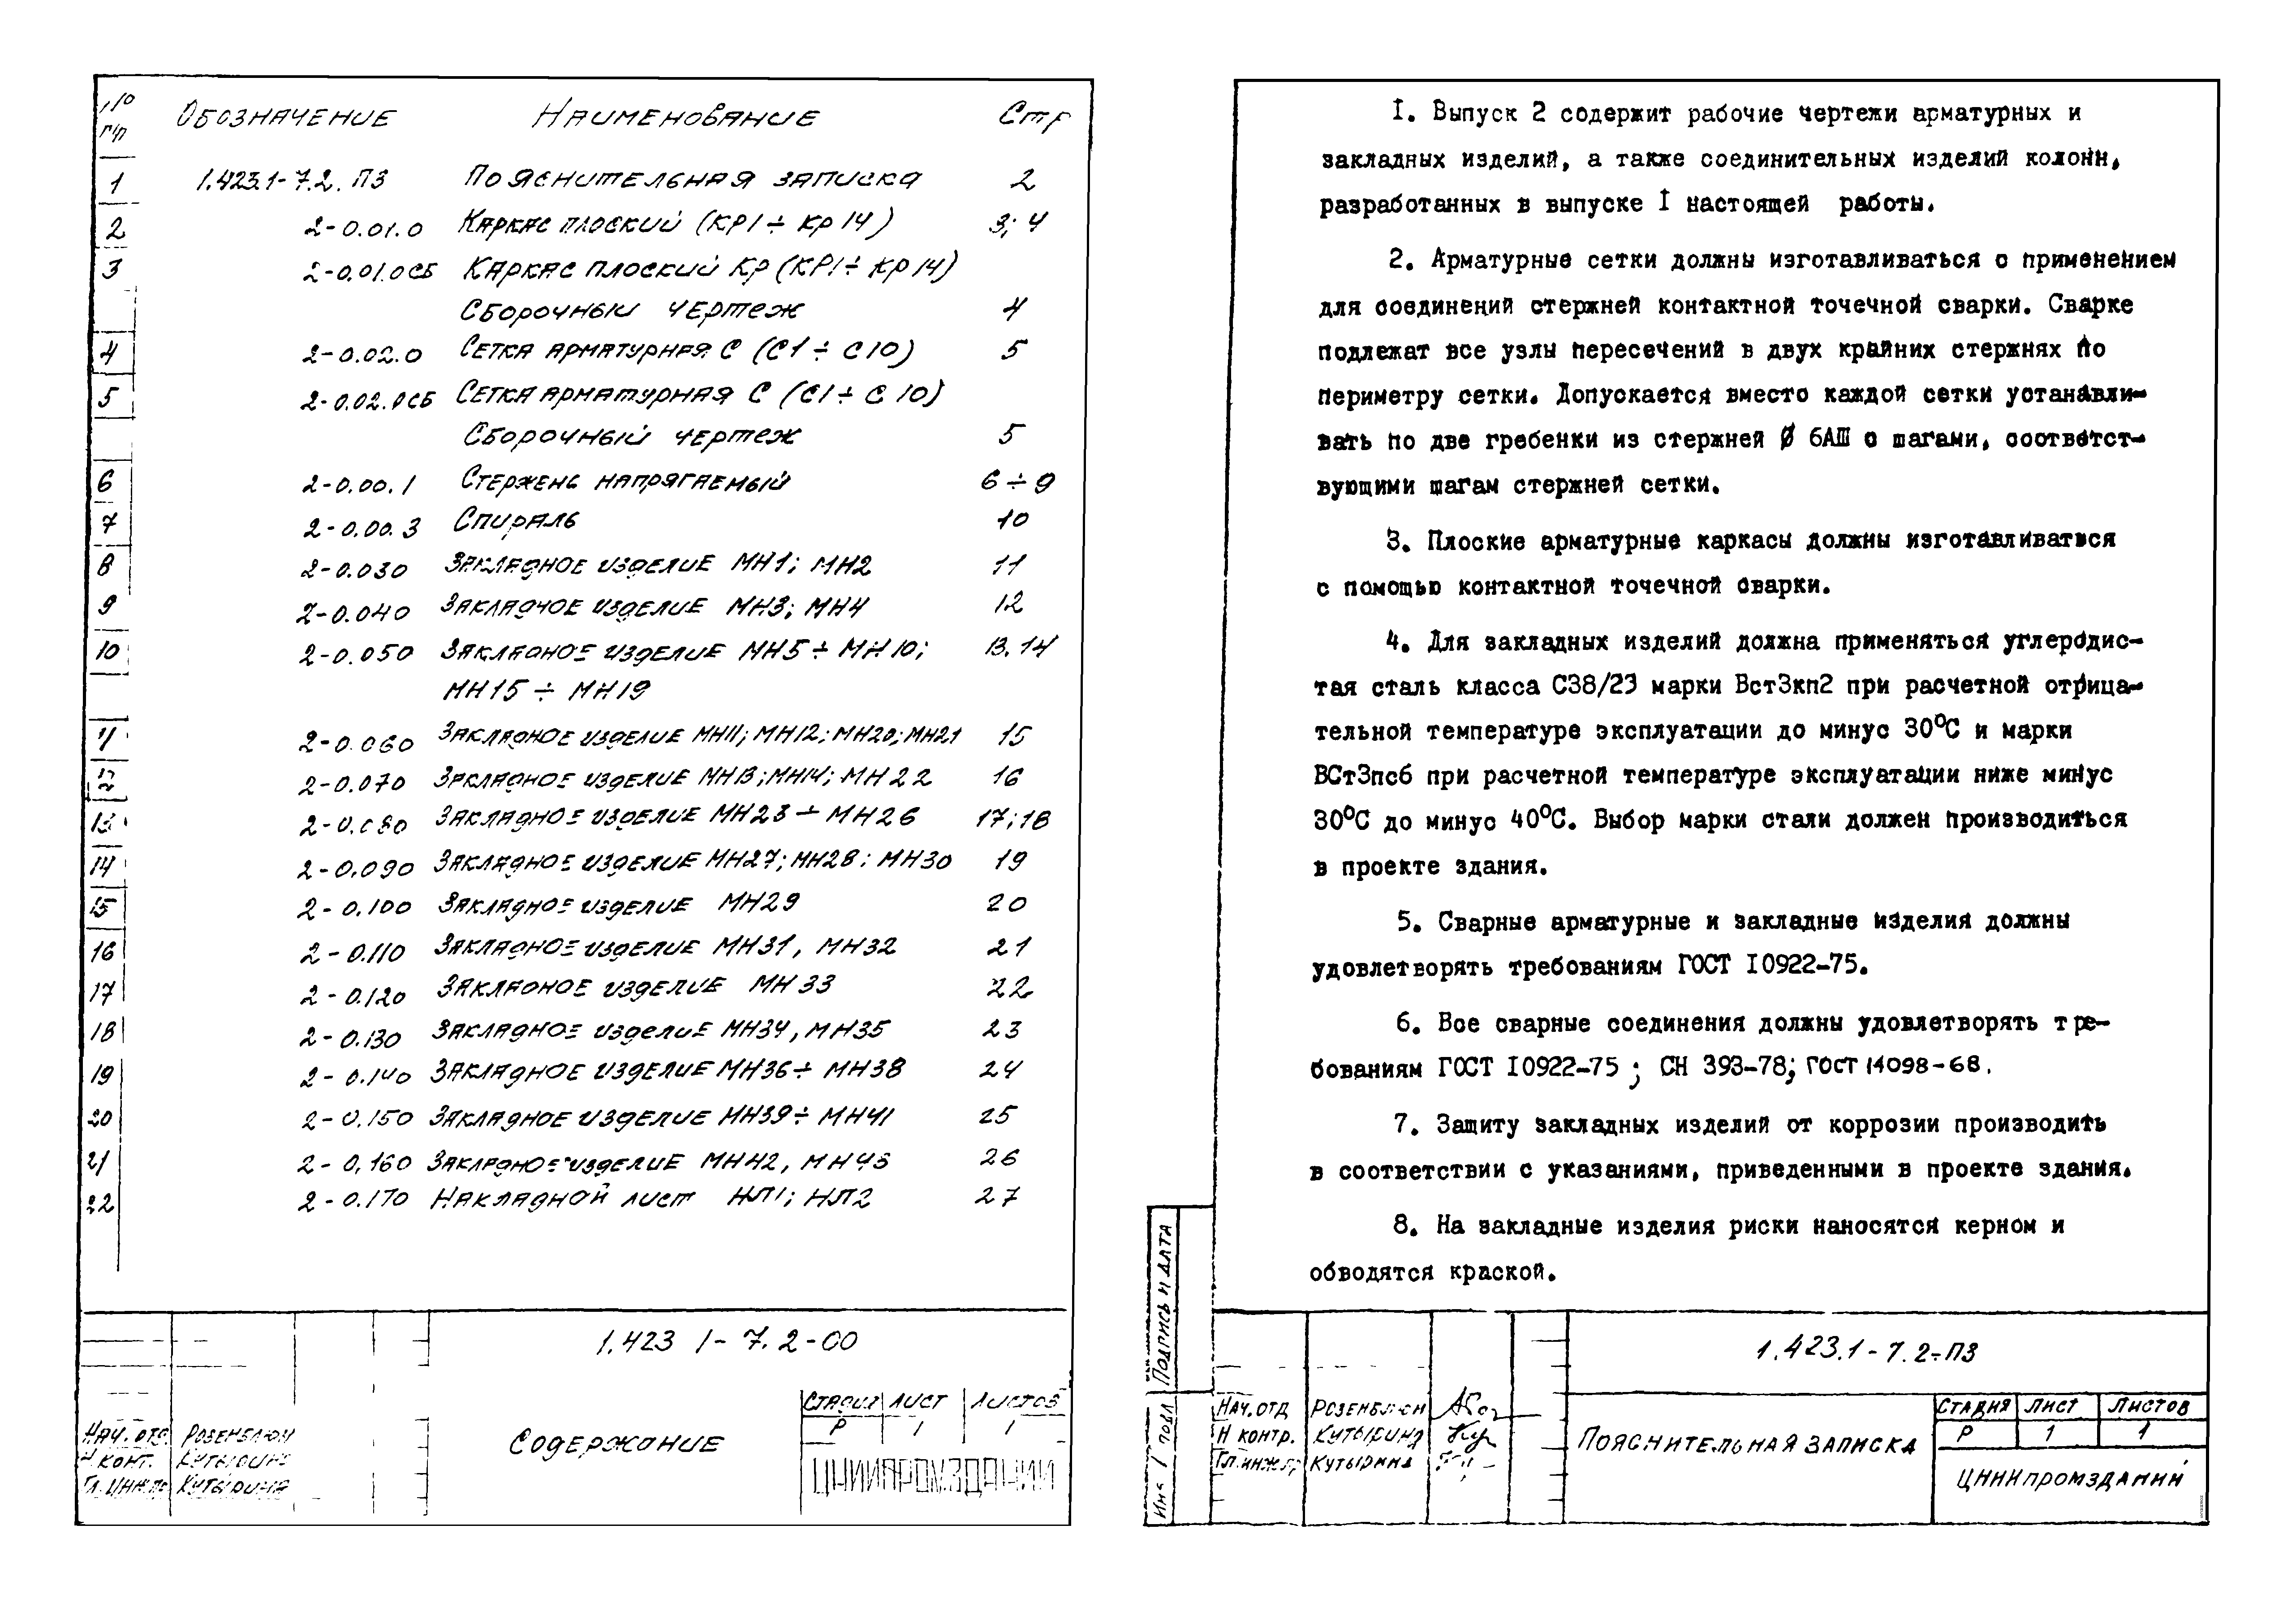 № п/п Обозначение Наименование Стр
1 1.423.1-7.2. ПЗ Пояснительная записка 2
2 2-0.01.0 Каркас плоский (КР1 ÷ КР 14) 3; 4
3 2-0.01.0СБ Каркас плоский КР (КР1 ÷ КР 14)
Сборочный чертеж 4
4 2-0.02.0 Сетка арматурная С (С1 ÷ С 10) 5
5 2-0.02.0СБ Сетка арматурная С (С1 ÷ С 10)
Сборочный чертеж 5
6 2-0.00.1 Стержень напрягаемый 6 ÷ 9
7 2-0.00.3 Спираль 10
8 2-0.030 Закладное изделие МН1; МН2 11
9 2-0.040 Закладное изделие МН3; МН4 12
10 2-0.050 Закладное изделие МН5 ÷ МН10; 13, 14
МН15 ÷ МН19
11 2-0.060 Закладное изделие МН11; МН12; МН20; МН21 15
12 2-0.070 Закладное изделие МН13; МН14; МН22 16
13 2-0.080 Закладное изделие МН23 ÷ МН26 17; 18
14 2-0.090 Закладное изделие МН27; МН28; МН30 19
15 2-0.100 Закладное изделие МН29 20
16 2-0.110 Закладное изделие МН31, МН32 21
17 2-0.120 Закладное изделие МН33 22
18 2-0.130 Закладное изделие МН34, МН35 23
19 2-0.140 Закладное изделие МН36 ÷ МН38 24
20 2-0.150 Закладное изделие МН39 ÷ МН41 25
21 2-0.160 Закладное изделие МН42, МН43 26
22 2-0.170 Накладной лист НЛ1; НЛ2 27
1.423 1-7.2-00
Стадия Лист Листов
Р 1 1
Нач. отд. Розенблюм
Н конт. Кутырина
Гл. инж. пр Кутырина
Содержание
ЦНИИПРОМЗДАНИЙ
1. Выпуск 2 содержит рабочие чертежи арматурных и
закладных изделий, а также соединительных изделий колонн,
разработанных в выпуске 1 настоящей работы.
2. Арматурные сетки должны изготавливаться с применением
для соединений стержней контактной точечной сварки. Сварке
подлежат все узлы пересечений в двух крайних стержнях по
периметру сетки. Допускается вместо каждой сетки устанавли-
вать по две гребенки из стержней Ø 6АШ с шагами, соответст-
вующими шагам стержней сетки.
3. Плоские арматурные каркасы должны изготавливаться
с помощью контактной точечной сварки.
4. Для закладных изделий должна применяться углеродис-
тая сталь класса С38/23 марки ВстЗкп2 при расчетной отрица-
тельной температуре эксплуатации до минус 30°С и марки
ВСтЗпс6 при расчетной температуре эксплуатации ниже минус
30°С до минус 40°С. Выбор марки стали должен производиться
в проекте здания.
5. Сварные арматурные и закладные изделия должны
удовлетворять требованиям ГОСТ 10922-75.
6. Все сварные соединения должны удовлетворять тре-
бованиям ГОСТ 10922-75; СН 393-78; ГОСТ 14098-68.
7. Защиту закладных изделий от коррозии производить
в соответствии с указаниями, приведенными в проекте здания.
8. На закладные изделия риски наносятся керном и
обводятся краской.
Подпись и дата
Инв подл
1.423.1-7.2-ПЗ
Нач. отд Розенблюм
Н контр. Кутырина
Гл. инж. пр Кутырина
Пояснительная записка
Стадия Лист Листов
Р 1 1
ЦНИИпромзданий